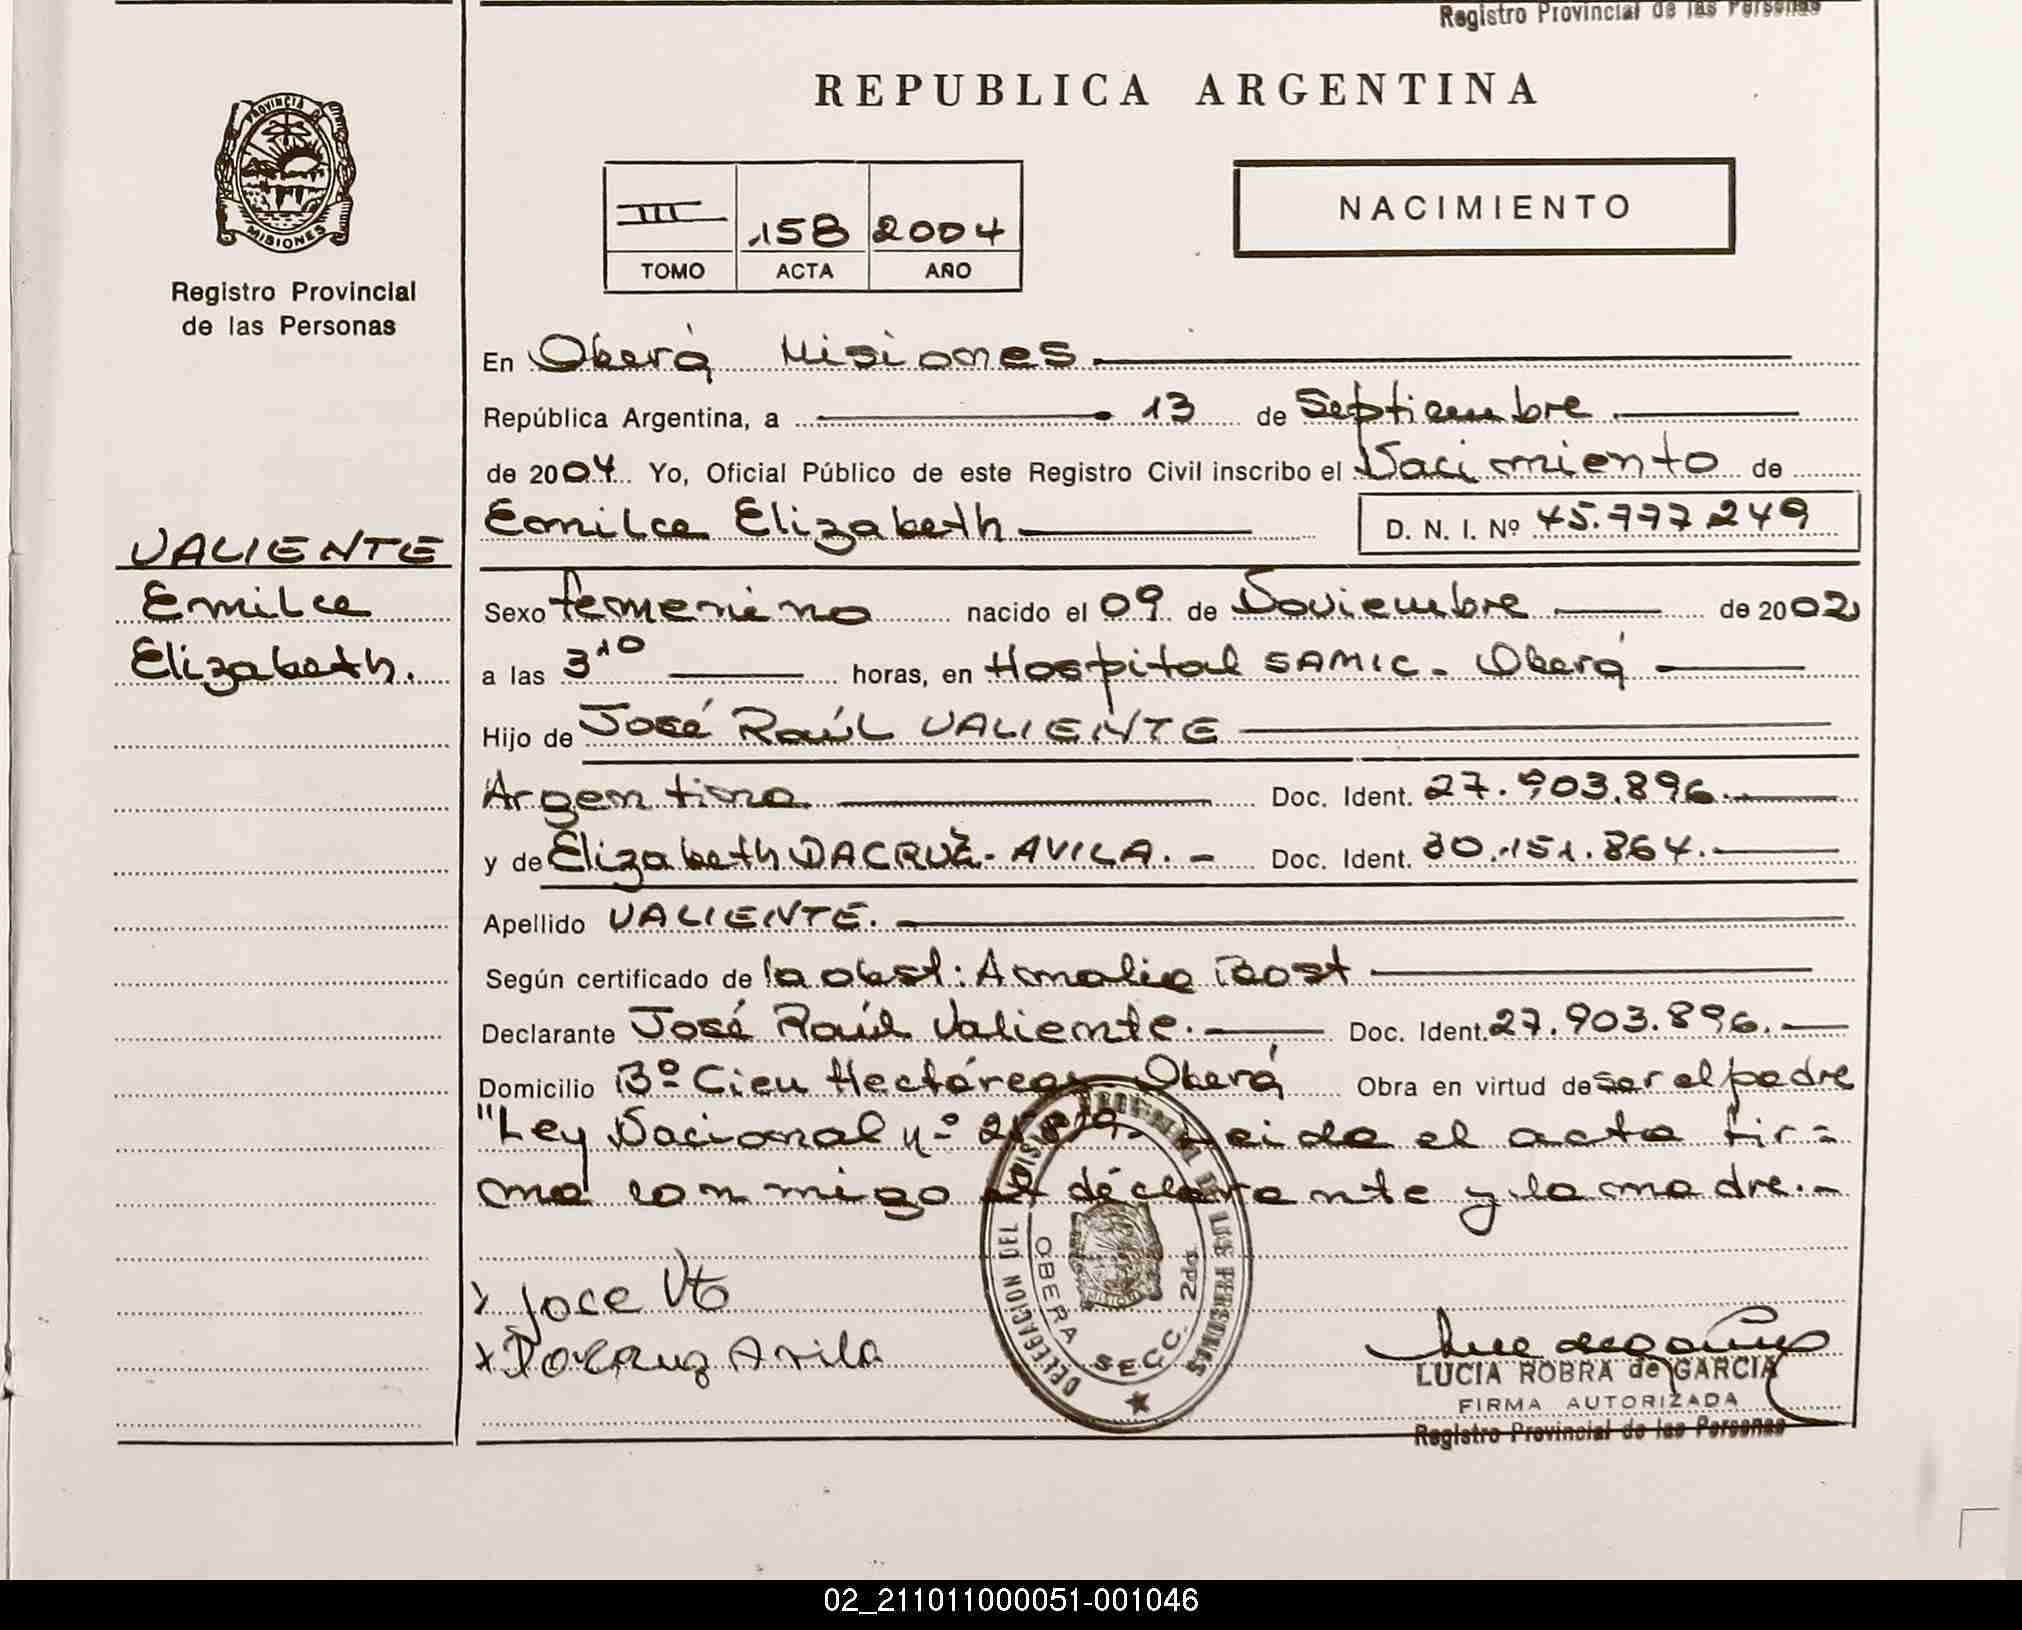 Registro Provincial de las Personas
REPUBLICA ARGENTINA
PROVINCIA DE
MISIONES
Registro Provincial
de las Personas
III 158 2004
TOMO ACTA AÑO
NACIMIENTO
En Oberá Misiones
República Argentina, a 13 de Septiembre
de 2004 Yo, Oficial Público de este Registro Civil inscribo el Nacimiento de
Emilce Elizabeth D. N. I. Nº 45.777249
VALIENTE
Emilce
Elizabeth.
Sexo femenino nacido el 09 de Noviembre de 2002
a las 3¹⁰ horas, en Hospital SAMIC - Oberá
Hijo de José Raúl VALIENTE
Argentina Doc. Ident. 27.903.896.
y de Elizabeth DACRUZ - AVILA. - Doc. Ident. 30.151.864.
Apellido VALIENTE.
Según certificado de la obst: Amalia Bost
Declarante José Raúl Valiente. Doc. Ident. 27.903.896.
Domicilio Bº Cien Hectáreas Oberá Obra en virtud de ser el padre
"Ley Nacional nº Leida el acta fir=
ma conmigo el declarante y la madre.-
x Jose Vto
x Dacruz Avila
DELEGACION DEL REGISTRO PROVINCIAL DE LAS PERSONAS
OBERA SECC. 2da
LUCIA ROBRA de GARCIA
FIRMA AUTORIZADA
Registro Provincial de las Personas
02_211011000051-001046